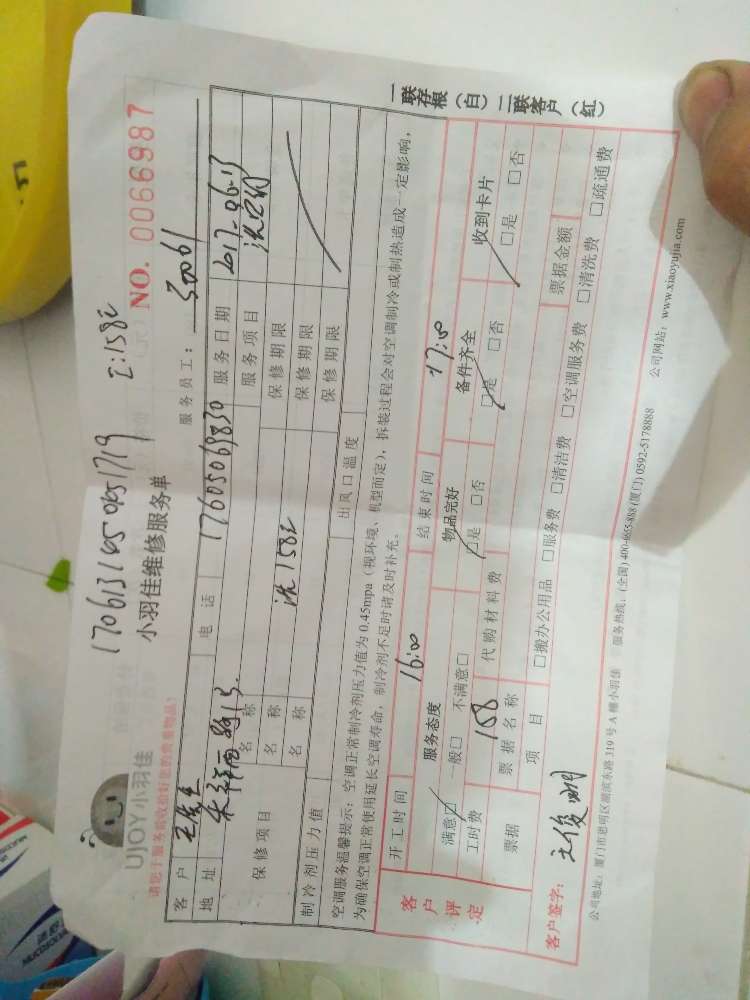 170613145045051719 工:158元
UJOY小羽佳
小羽佳维修服务单
NO. 0066987
请您于服务前收拾好您的贵重物品!
服务员工: 30061
客户 王先生 电话 17605069830 服务日期 2017-06-13
地址 服务项目 洗空调
保修项目 名称 保修期限
名称 洗158元 保修期限
名称 保修期限
制冷剂压力值 出风口温度
空调服务温馨提示:空调正常制冷剂压力值为0.45mpa(视环境、机型而定),拆装过程会对空调制冷或制热造成一定影响,
为确保空调正常使用延长空调寿命,制冷剂不足时请及时补充。
客户评定
开工时间 16:00 结束时间 17:00
服务态度 物品完好 备件齐全 收到卡片
满意□ 一般□ 不满意□ □是 □否 □是 □否 □是 □否
工时费 158 代购材料费
票据 票据名称 票据金额
项目 □搬办公用品 □服务费 □清洁费 □空调服务费 □清洗费 □疏通费
客户签字: 王俊
公司地址:厦门市思明区湖滨东路319号A幢小羽佳 服务热线:(全国)400-6655-888(厦门)0592-5178888 公司网站:www.xiaoyujia.com
一联存根(白)二联客户(红)